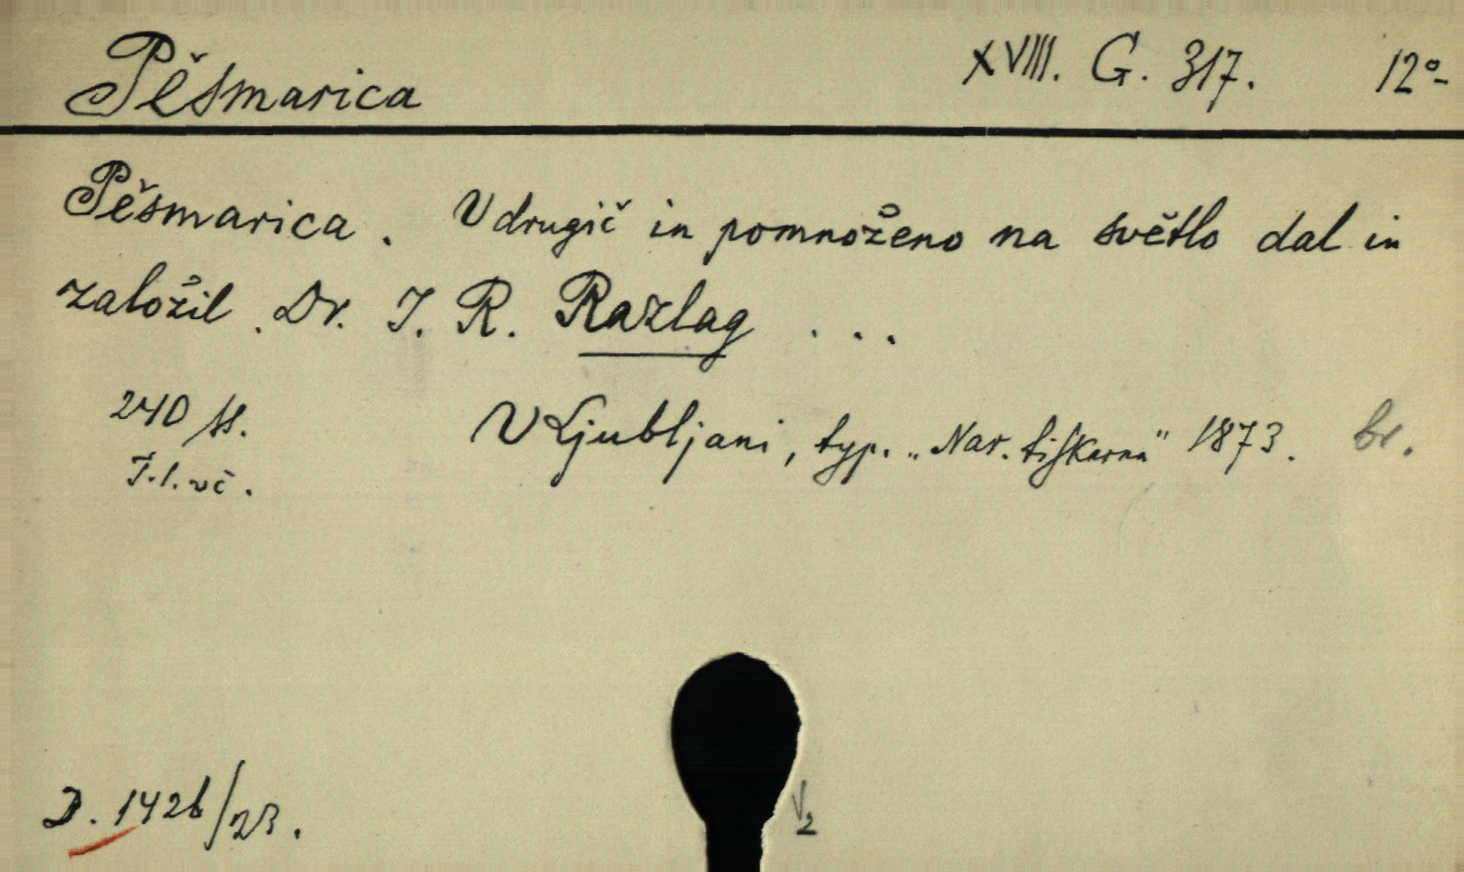 Pěsmarica XVIII. G. 317. 12°
Pěsmarica. V drugič in pomnoženo na světlo dal in
založil Dr. J. R. Razlag ...
240 ss. V Ljubljani, typ. „Nar. tiskarna" 1873. br.
D. 1426/23.
V2